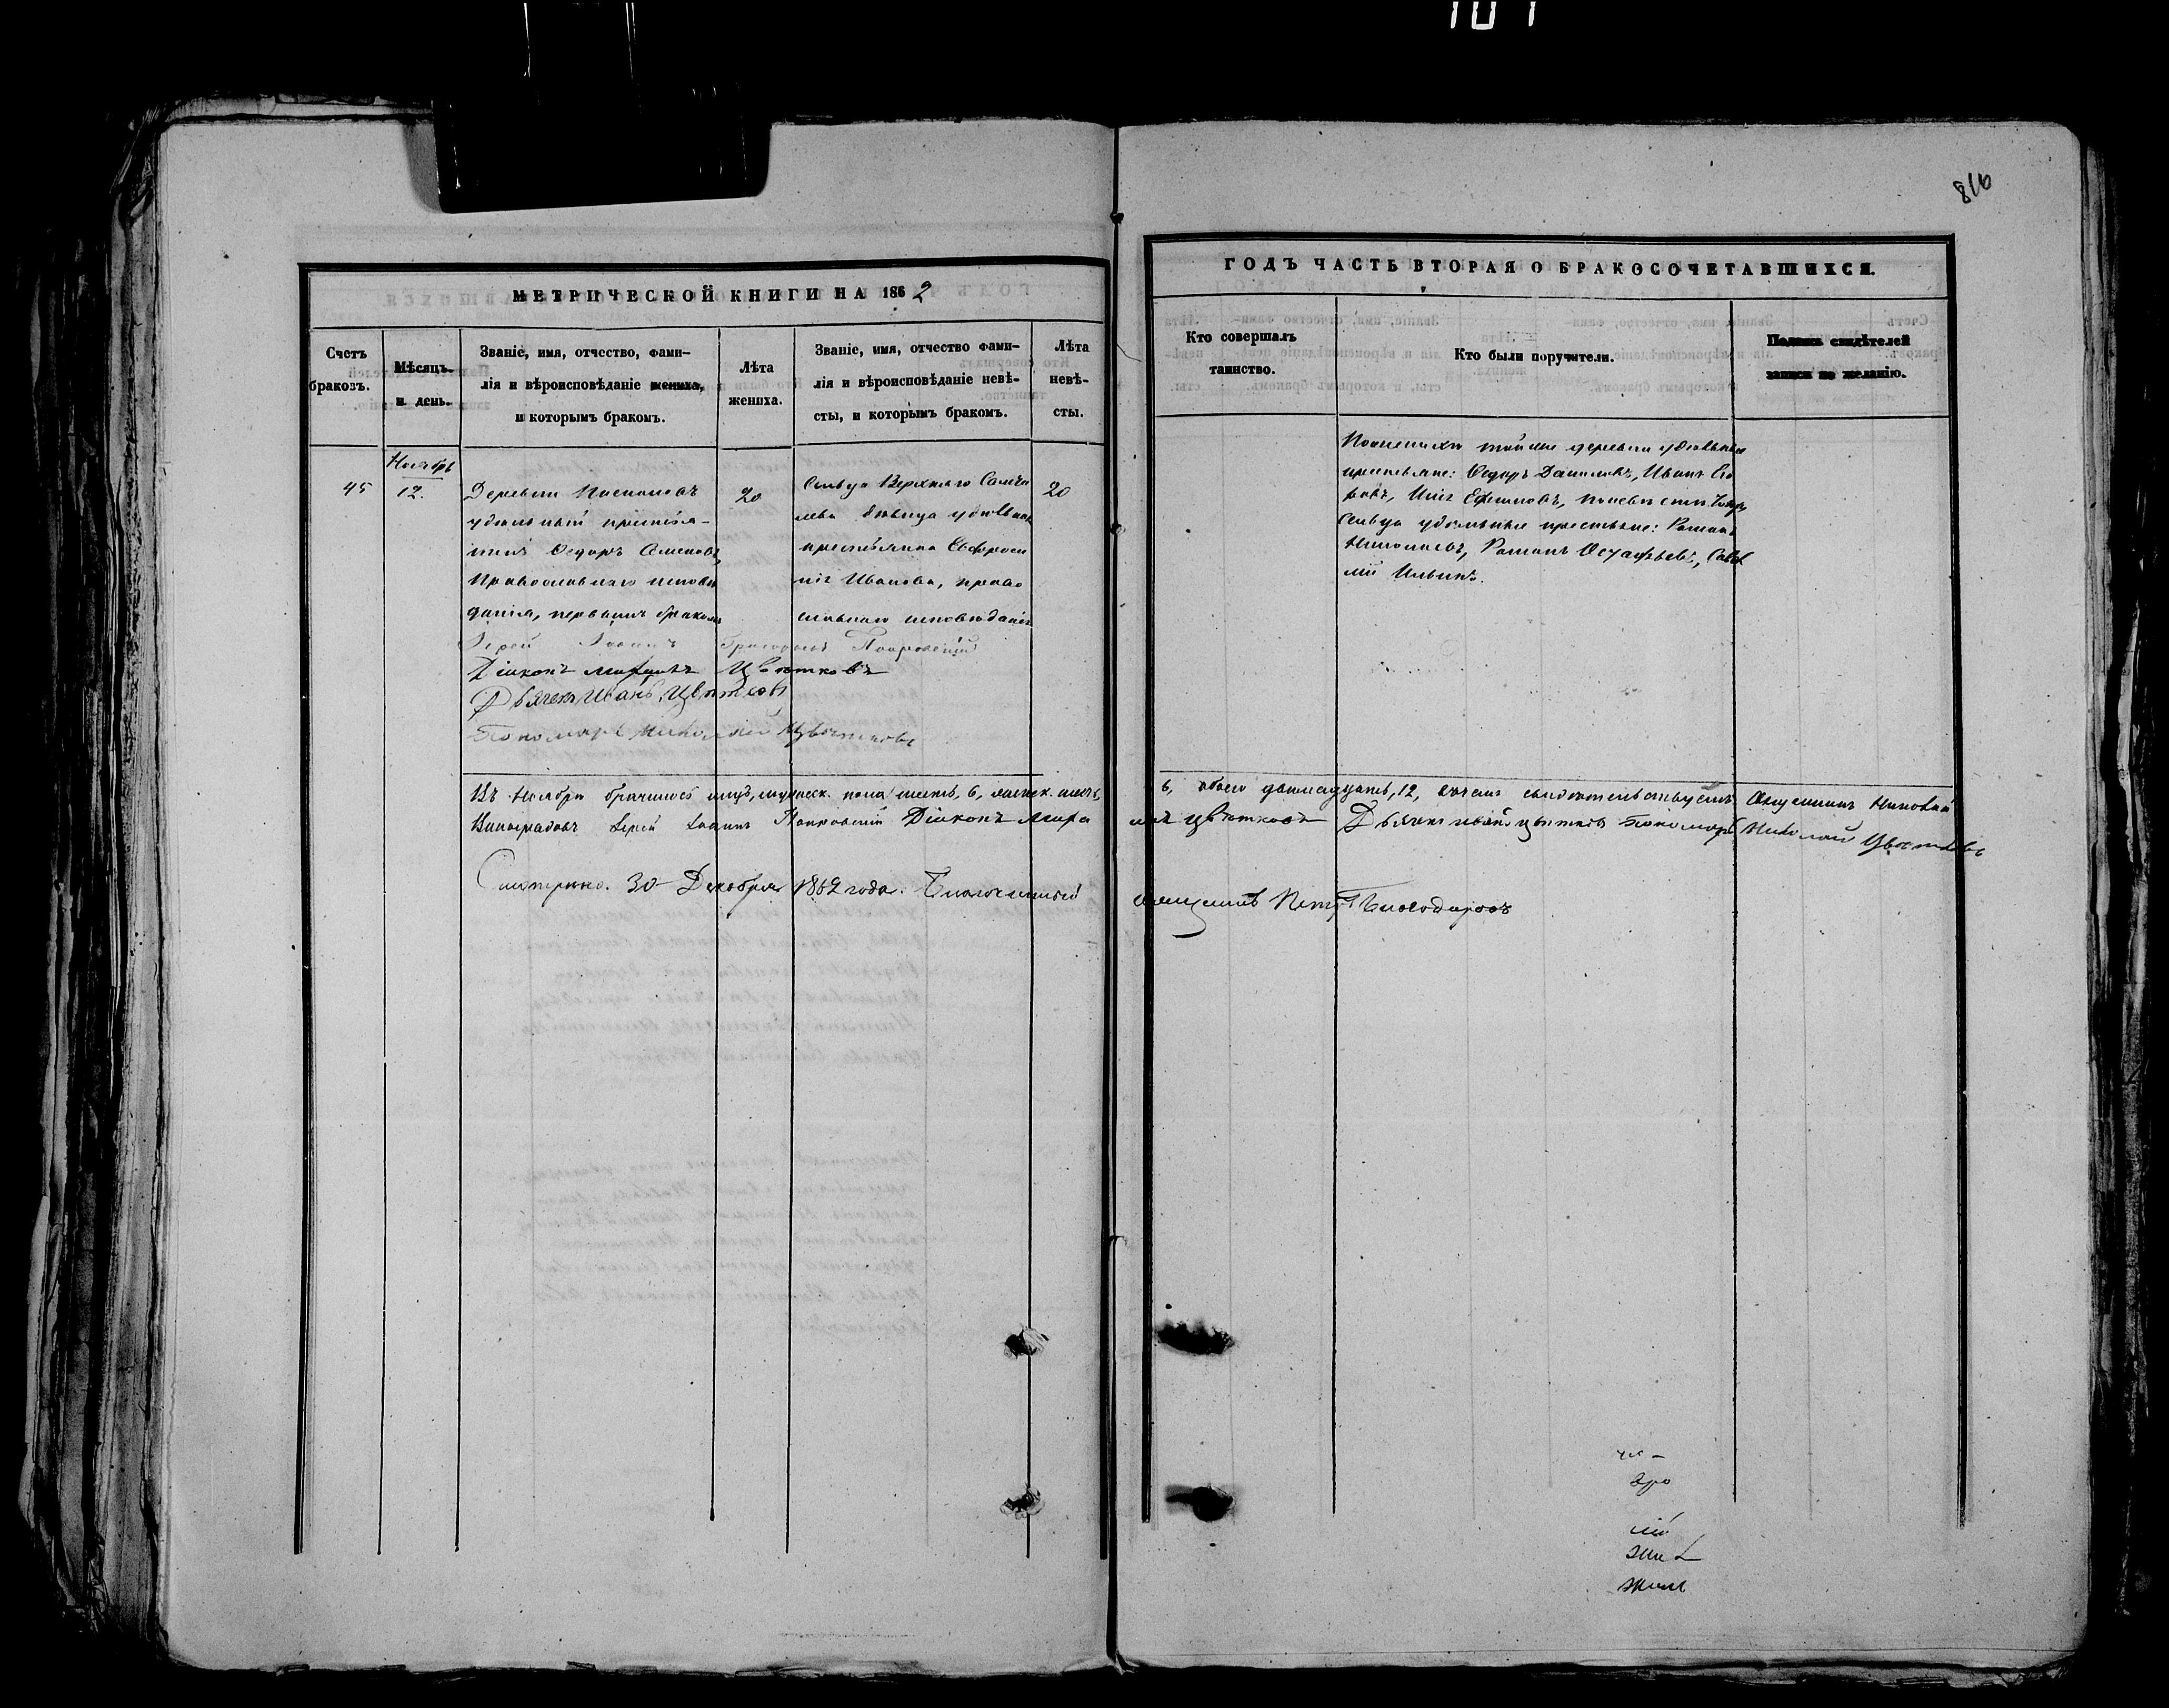 107
816
МЕТРИЧЕСКОЙ КНИГИ НА 1862
ГОДЪ ЧАСТЬ ВТОРАЯ О БРАКОСОЧЕТАВШИХСЯ.
Счетъ браковъ.
Мѣсяцъ и день.
Званіе, имя, отчество, фами-
лія и вѣроисповѣданіе жениха,
и которымъ бракомъ.
Лѣта
жениха.
Званіе, имя, отчество фами-
лія и вѣроисповѣданіе невѣ-
сты, и которымъ бракомъ.
Лѣта
невѣ-
сты.
Кто совершалъ
таинство.
Кто были поручители.
Подпись свидѣтелей
записи по желанію.
Ноябрь
45
12.
Деревни
удѣльный крестья-
нинъ Ѳедоръ Семеновъ,
Православнаго исповѣ
данія, первымъ бракомъ
20
Сельца Верхняго
дѣвица удѣльная
крестьянка Евфроси
нія Иванова, право
славнаго исповѣданія
20
По женихѣ той же деревни удѣльные
крестьяне: Ѳедоръ Даниловъ, Иванъ
Ефимовъ, по невѣстѣ того
Сельца удѣльные крестьяне: Романъ
Николаевъ, Романъ Савел
лій Ильинъ.
Іерей Іоаннъ Григорьевъ Покровскій
Діаконъ Цвѣтковъ
Дьячекъ Иванъ Цвѣтковъ
Пономарь Николай Цвѣтковъ
Въ Ноябрѣ брачилось лицъ, мужеск. пола шесть, 6, женск. шесть,
6, обоего двѣнадцать, 12, въ чемъ свидѣтельствуемъ Священникъ
Виноградовъ Іерей Іоаннъ Покровскій Діаконъ
Цвѣтковъ Дьячекъ Иванъ Цвѣтковъ Пономарь Николай Цвѣтковъ
Смотрѣно. 30 Декабря 1862 года. Благочинный
Священникъ Петръ